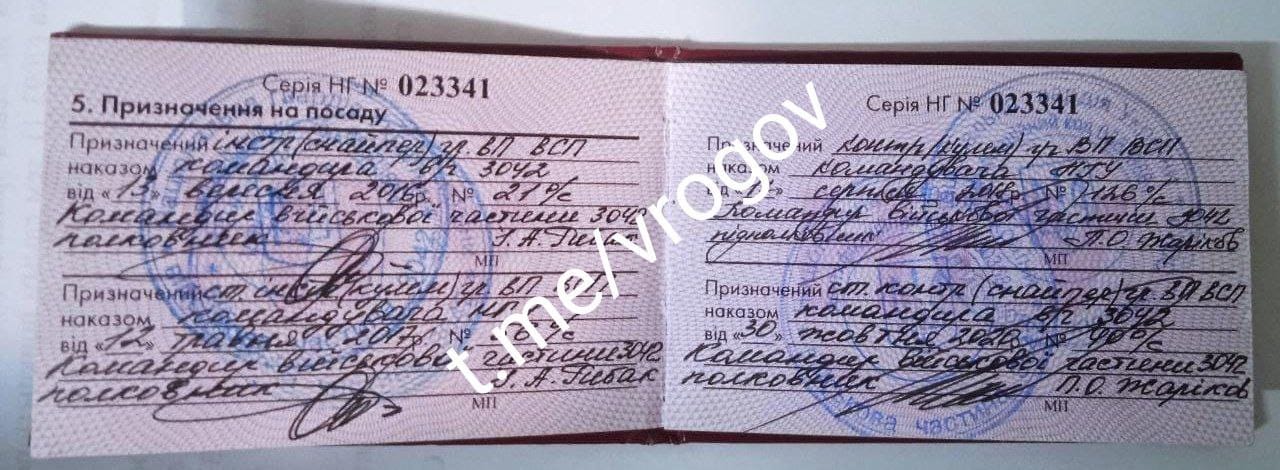 Серія НГ № 023341
5. Призначення на посаду
Призначений інстр (снайпер) гр. ВП ВСП
наказом командира в/ч 3042
від «13» вересня 2016р. № 21 о/с
Командир військової частини 3042
полковник І. А. Гибак
МП
Призначений ст. інстр (кулем) гр. ВП
наказом командувача
від «12» травня 2017р. №
Командир військової частини 3042
полковник І. А. Гибак
МП
Серія НГ № 023341
Призначений контр (кулем) гр. ВП ВСП
наказом командувача НГУ
від « » серпня 2018р. № 126 о/с
Командир військової частини 3042
підполковник П. О. Жаріков
МП
Призначений ст. контр (снайпер) гр. ВП ВСП
наказом командира в/ч 3042
від «30» жовтня 2020р. № 90 о/с
Командир військової частини 3042
полковник П. О. Жаріков
МП
t.me/vrogov